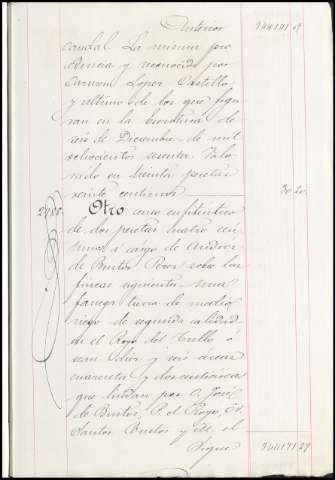 Anterior 344141 09
caudal. La misma pro
cedencia y reconocido por
Carmen Lopez Castillo
y ultimo de los que figu
ran en la escritura de
seis de Diciembre de mil
ochocientos sesenta. Valo
rado en treinta pesetas
veinte centimos 30 20
2988. Otro censo enfiteutico
de dos pesetas cuatro cen
timos a cargo de
de Bustos sobre las
fincas siguientes una
fanega tierra de medio
riego de segunda calidad
en el del o
sean diez y seis areas
cuarenta y dos centiareas
que lindan por O. José
de Bustos, P. el
Santos Bustos y el
Sigue 344171 29